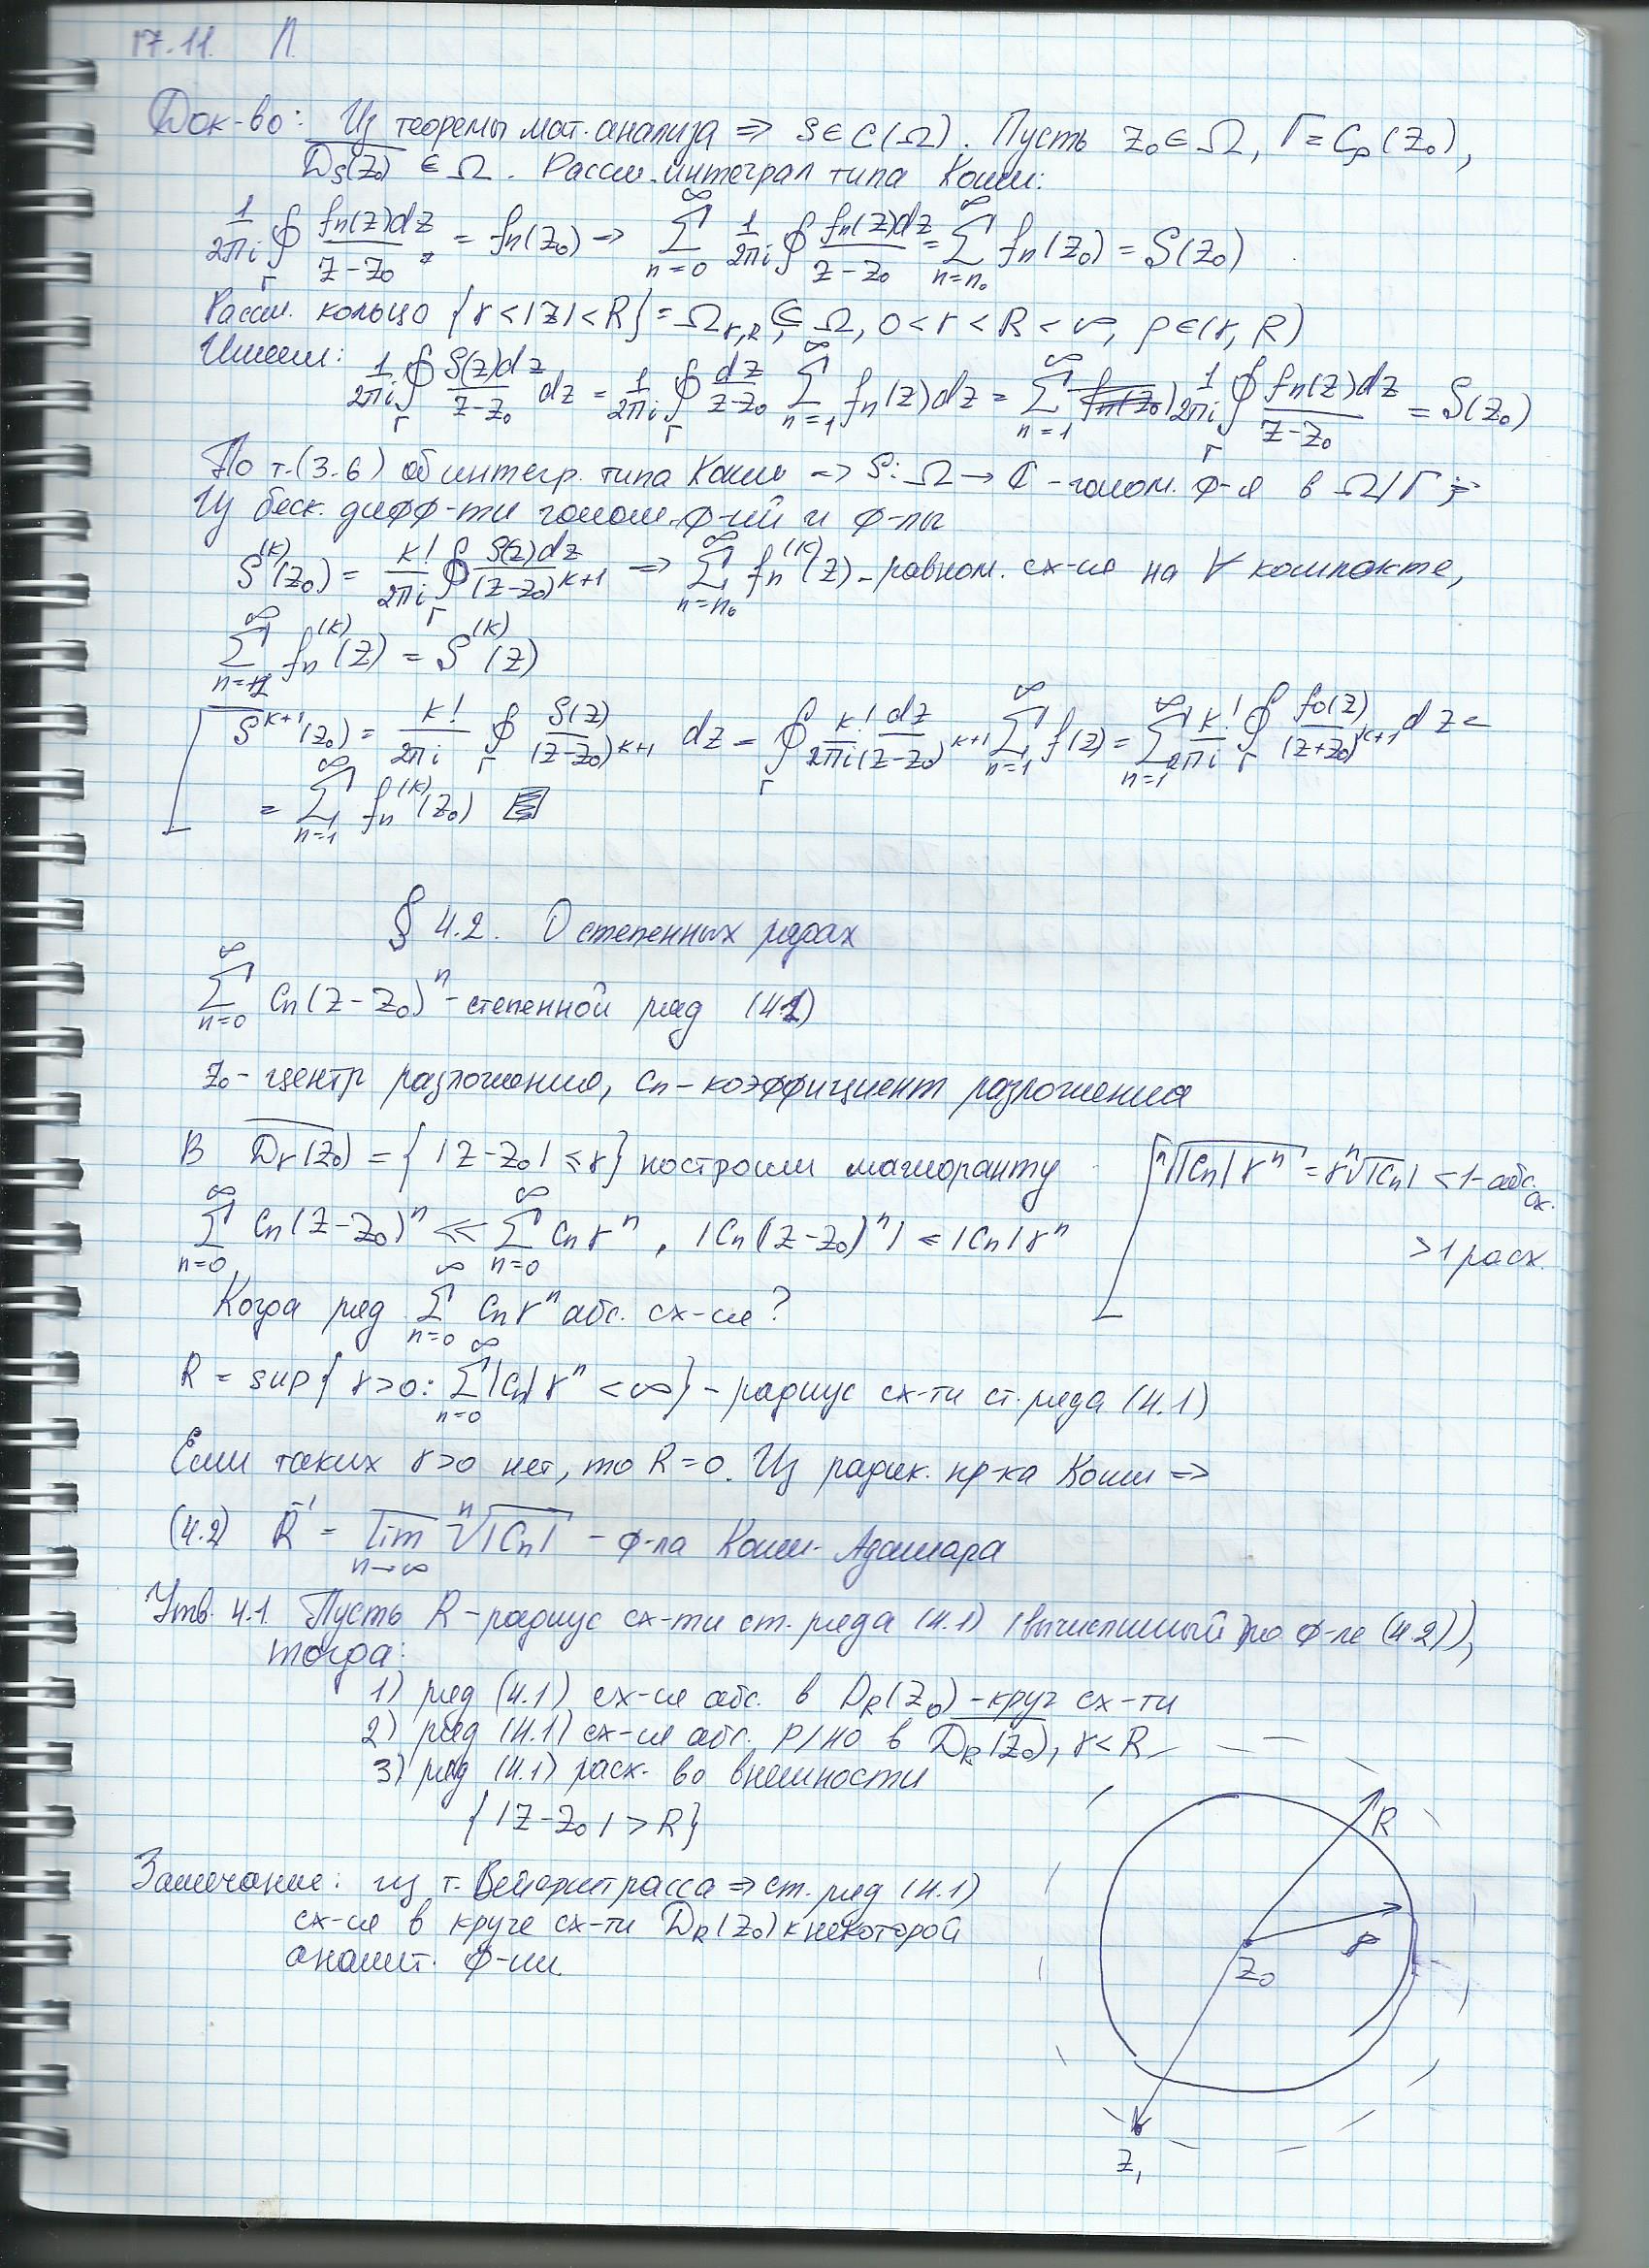 17.11. Л.
Док-во: Из теоремы мат. анализа ⇒ S∈C(Ω). Пусть z₀∈Ω, Γ=Cρ(z₀),
D̅s(z₀) ∈ Ω. Рассм. интеграл типа Коши:
1/2πi ∮_Γ fn(z)dz/(z-z₀) = fn(z₀) ⇒ ∑_{n=0}^∞ 1/2πi ∮ fn(z)dz/(z-z₀) = ∑_{n=n₀}^∞ fn(z₀) = S(z₀)
Рассм. кольцо {r<|z|<R} = Ω_{r,R} ⋐ Ω, 0<r<R<∞, ρ∈(r, R)
Имеем: 1/2πi ∮_Γ S(z)dz/(z-z₀) dz = 1/2πi ∮_Γ dz/(z-z₀) ∑_{n=1}^∞ fn(z)dz = ∑_{n=1}^∞ 1/2πi ∮_Γ fn(z)dz/(z-z₀) = S(z₀)
По т.(3.6) об интегр. типа Коши ⇒ S: Ω→ℂ - голом. ф-я в Ω/Γ ⇒
Из беск. дифф-ти голом. ф-ий и ф-лы
S^(k)(z₀) = k!/2πi ∮_Γ S(z)dz/(z-z₀)^{k+1} ⇒ ∑_{n=n₀}^∞ fn^(k)(z) - равном. сх-ся на ∀ компакте,
∑_{n=1}^∞ fn^(k)(z) = S^(k)(z)
S^{k+1}(z₀) = k!/2πi ∮_Γ S(z)/(z-z₀)^{k+1} dz = ∮_Γ k!/2πi dz/(z-z₀)^{k+1} ∑_{n=1}^∞ f(z) = ∑_{n=1}^∞ k!/2πi ∮_Γ f₀(z)/(z+z₀)^{k+1} dz =
= ∑_{n=1}^∞ fn^(k)(z₀)
§ 4.2. О степенных рядах
∑_{n=0}^∞ Cn(z-z₀)^n - степенной ряд (4.1)
z₀ - центр разложения, Cn - коэффициент разложения
В D̅r(z₀) = {|z-z₀| ≤ r} построим мажоранту
ⁿ√(|Cn| r^n) = r ⁿ√|Cn| < 1 - абс. сх.
> 1 расх.
∑_{n=0}^∞ Cn(z-z₀)^n ≪ ∑_{n=0}^∞ Cn r^n, |Cn(z-z₀)^n| ≤ |Cn| r^n
Когда ряд ∑_{n=0}^∞ Cn r^n абс. сх-ся?
R = sup{r>0: ∑_{n=0}^∞ |Cn| r^n < ∞} - радиус сх-ти ст. ряда (4.1)
Если таких r>0 нет, то R=0. Из радик. пр-ка Коши ⇒
(4.2) R^{-1} = l̅i̅m̅_{n→∞} ⁿ√|Cn| - ф-ла Коши-Адамара
Утв. 4.1. Пусть R - радиус сх-ти ст. ряда (4.1) (вычислимый по ф-ле (4.2)),
тогда:
1) ряд (4.1) сх-ся абс. в D_R(z₀) - круг сх-ти
2) ряд (4.1) сх-ся абс. р/но в D̅_R(z₀), r<R
3) ряд (4.1) расх. во внешности
{|z-z₀| > R}
Замечание: из т. Вейерштрасса ⇒ ст. ряд (4.1)
сх-ся в круге сх-ти D_R(z₀) к некоторой
аналит. ф-ии.
R
r
z₀
z₁